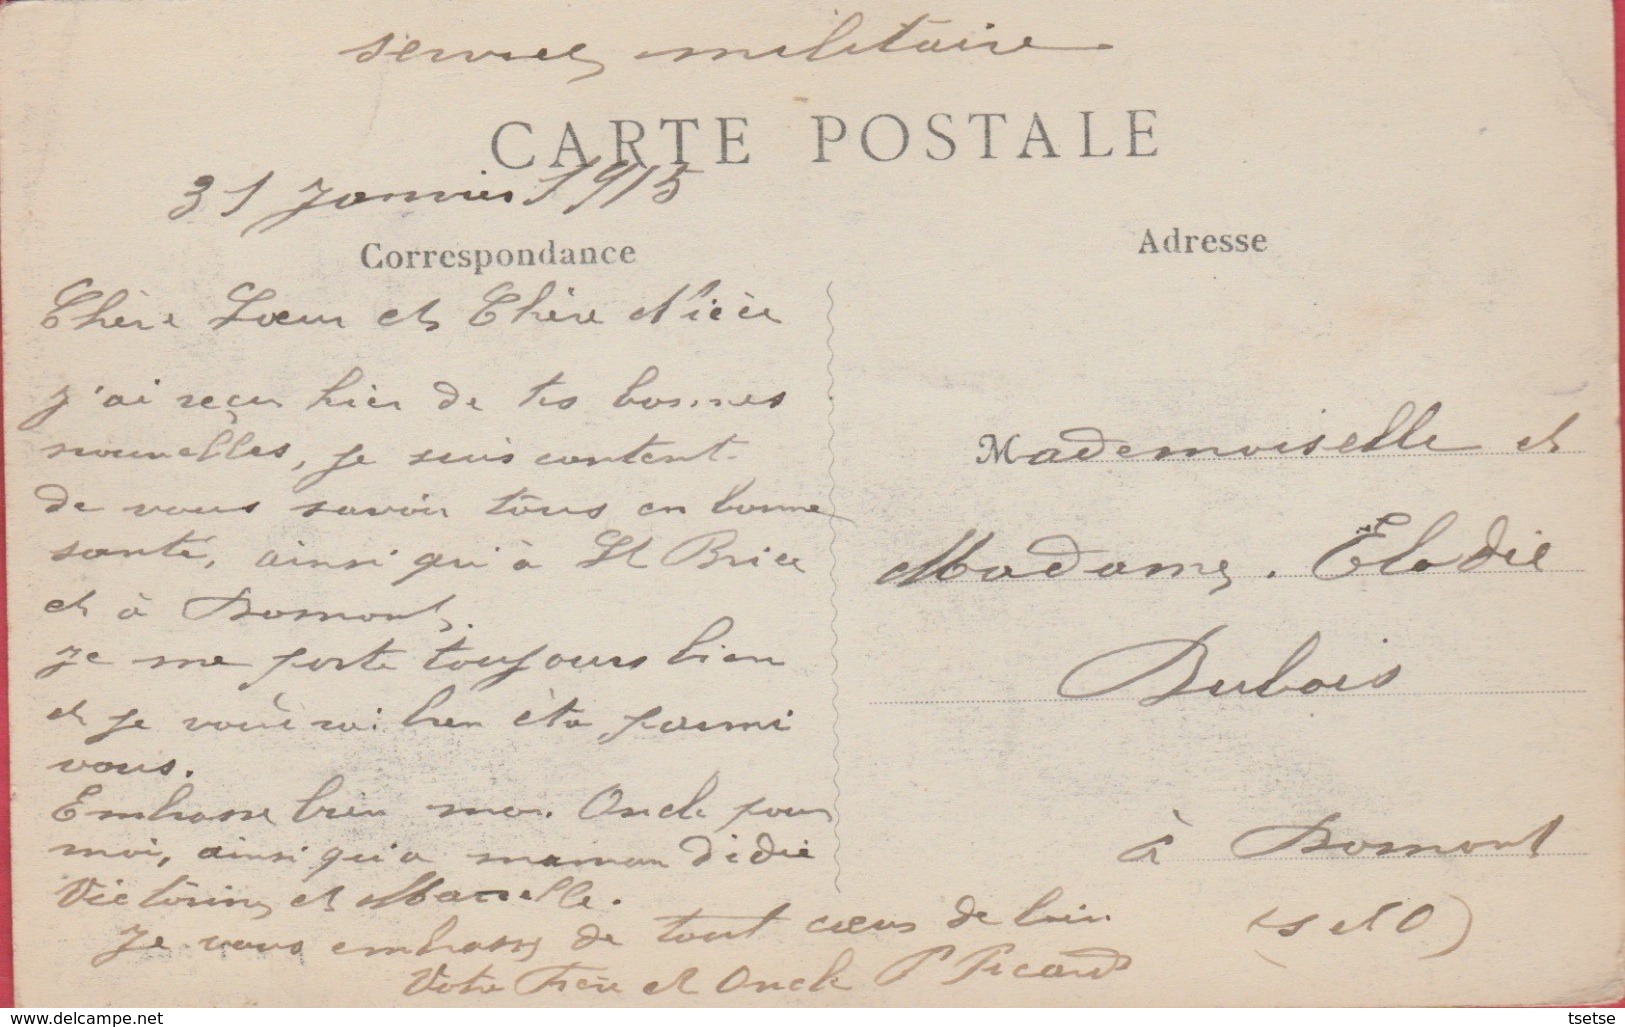 service militaire
CARTE POSTALE
31 Janvier 1915
Correspondance
Adresse
Chère Sœur et Chère Nièce
J'ai reçu hier de tes bonnes
nouvelles, je suis content
de vous savoir tous en bonne
santé, ainsi qu'à St Brice
et à Domont.
Je me porte toujours bien
et je voudrai bien être parmi
vous.
Embrasse bien mon Oncle pour
moi, ainsi qu'a maman Didie
Victorine et Marcelle.
Je vous embrasse de tout cœur de loin
Votre Frère et Oncle P Picard
Mademoiselle et
Madame. Elodie
Dubois
à Domont
(S et O)
tsetse
www.delcampe.net